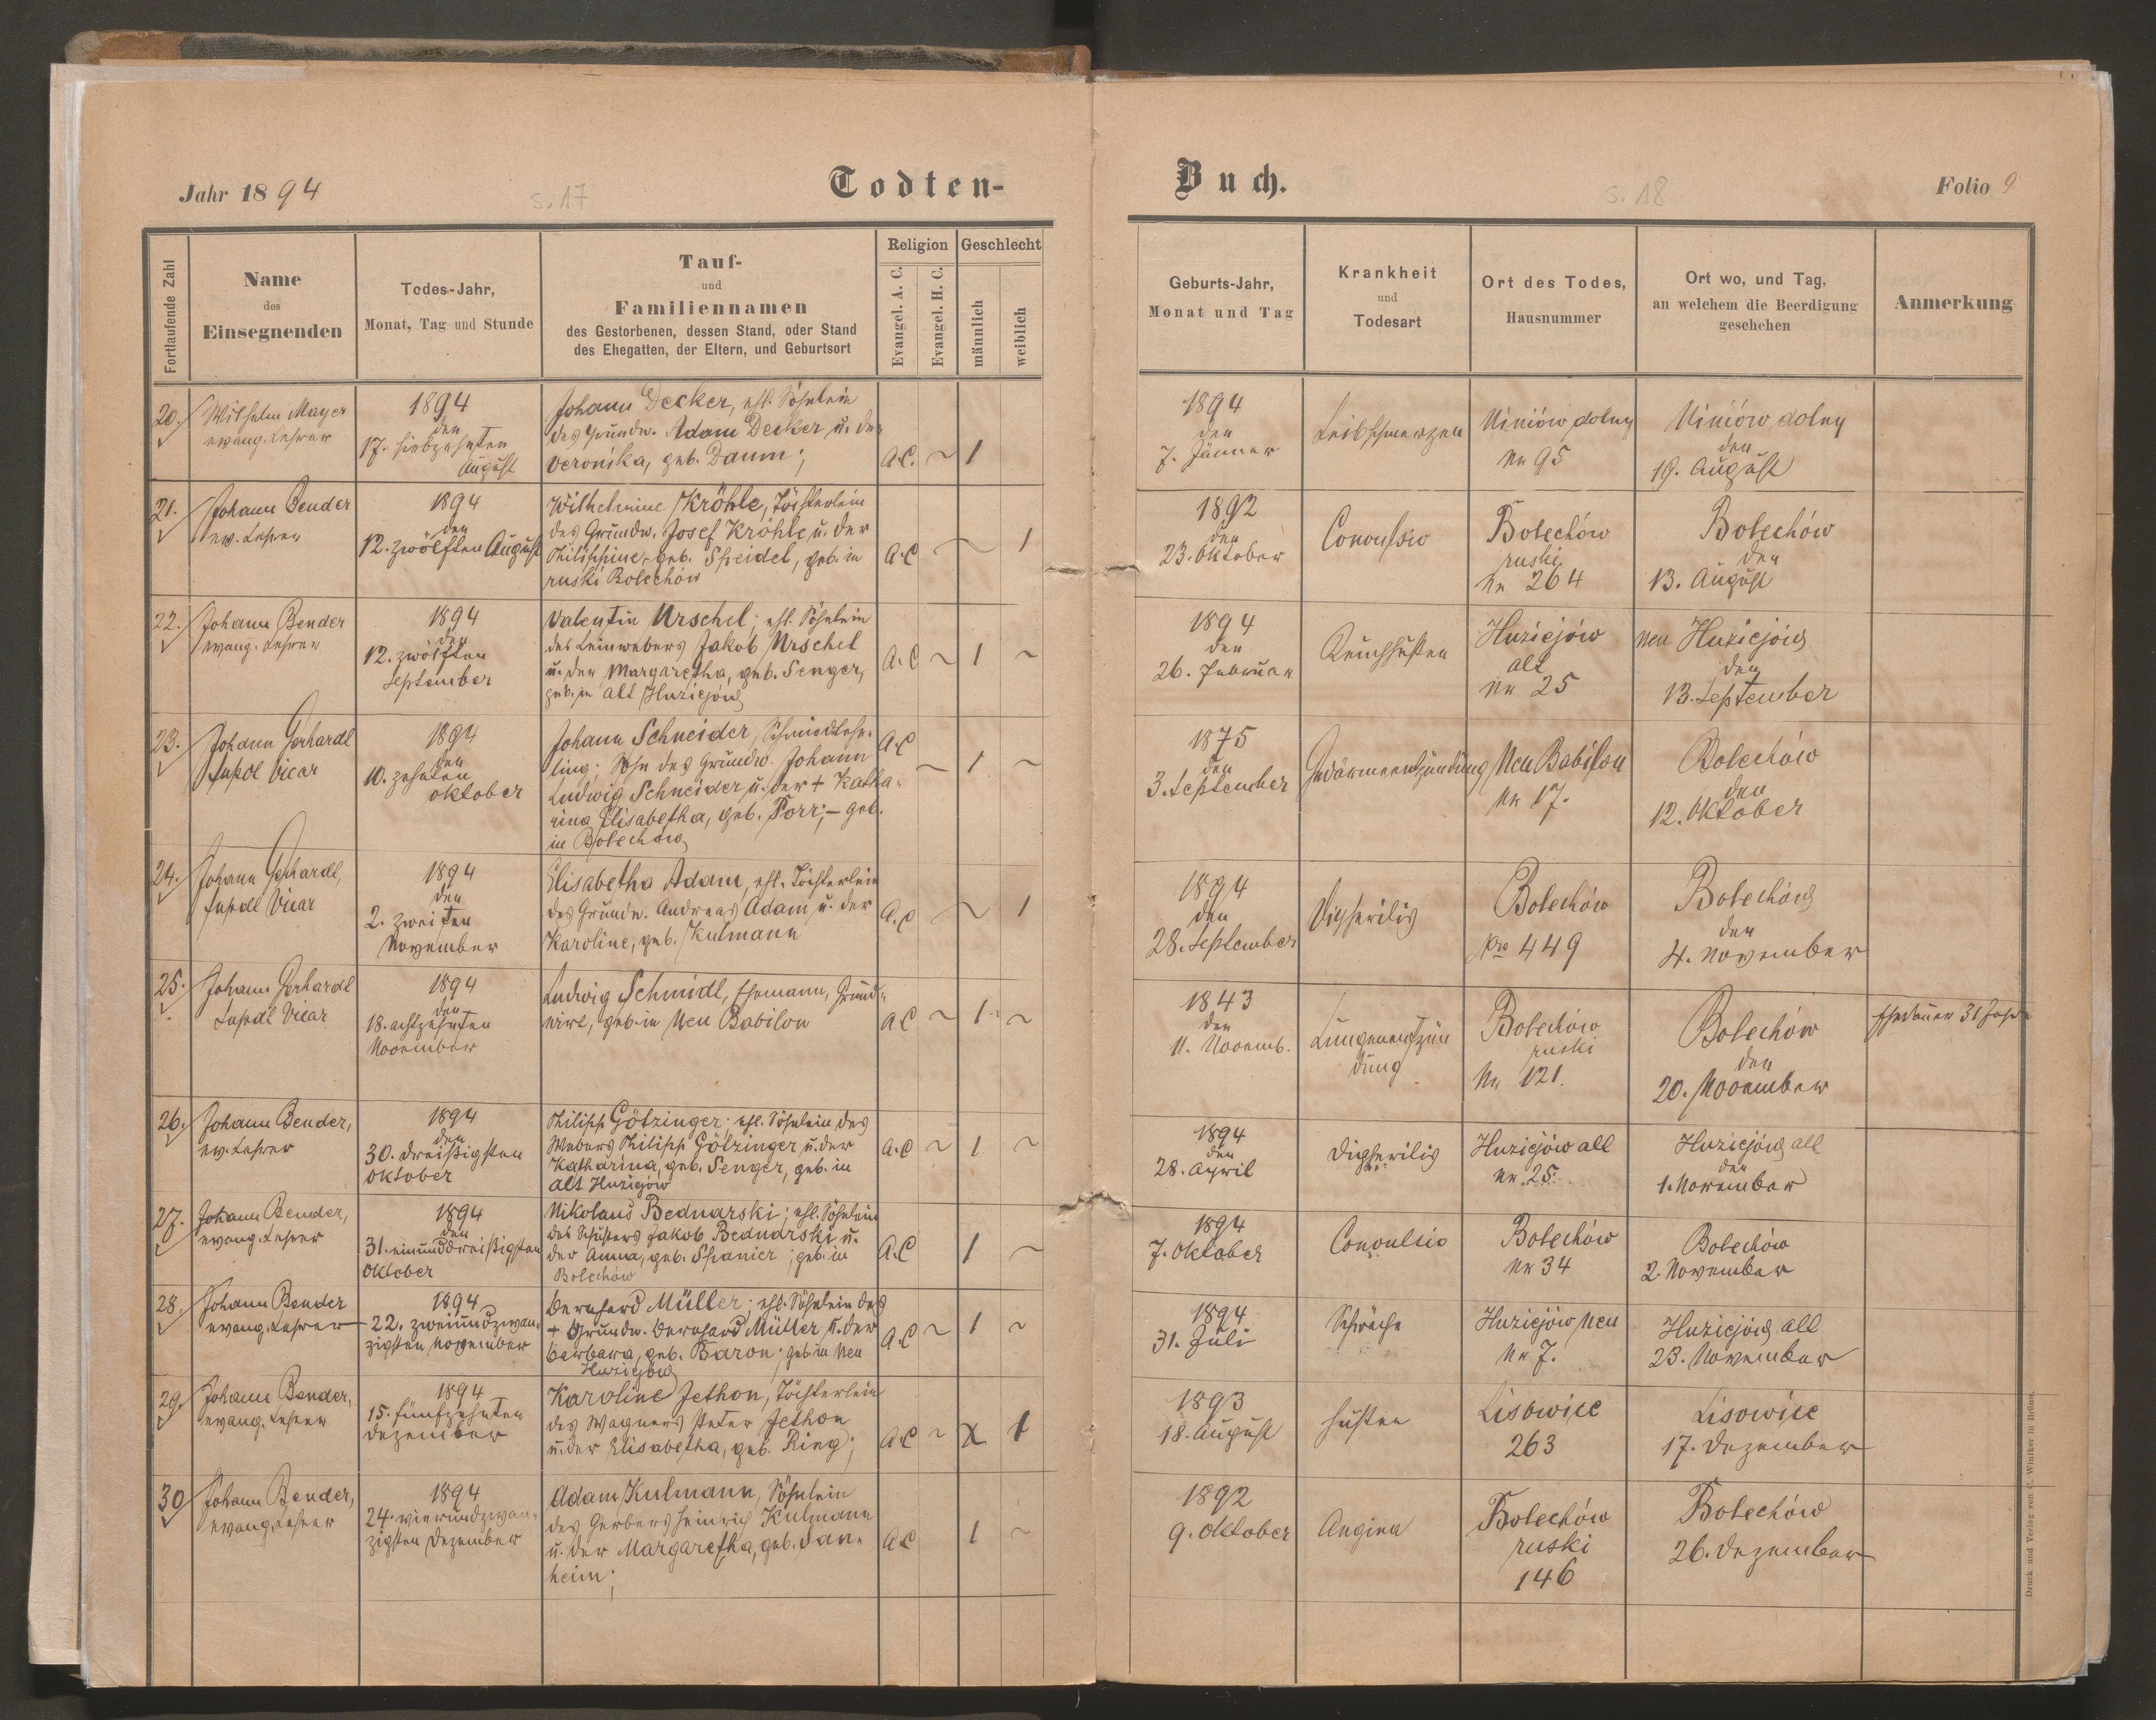 Jahr 1894
s. 17
Todten-
Buch.
s. 18
Folio 9
Fortlaufende Zahl
Name
des
Einsegnenden
Todes-Jahr,
Monat, Tag und Stunde
Tauf-
und
Familiennamen
des Gestorbenen, dessen Stand, oder Stand
des Ehegatten, der Eltern, und Geburtsort
Religion
Evangel. A. C.
Evangel. H. C.
Geschlecht
männlich
weiblich
Geburts-Jahr,
Monat und Tag
Krankheit
und
Todesart
Ort des Todes,
Hausnummer
Ort wo, und Tag,
an welchem die Beerdigung
geschehen
Anmerkung
20.
Wilhelm Mayer
evang. Lehrer
1894
den
17. siebzehnten
August
Johann Decker, ehl. Söhnlein
des Grundw. Adam Decker u. der
Veronika, geb. Daum;
A.C. ~ 1
1894
den
7. Jänner
Leibschmerzen
Niniów dolny
Nr 95
Niniów dolny
den
19. August
21.
Johann Bender
ev. Lehrer
1894
den
12. zwölften August
Wilhelmine Kröhle, Töchterlein
des Grundw. Josef Kröhle u. der
Philippine, geb. Speidel, geb. in
ruski Bolechów
A.C ~ 1
1892
den
23. Oktober
Convulsio
Bolechów
ruski
Nr 264
Bolechów
den
13. August
22.
Johann Bender
evang. Lehrer
1894
den
12. zwölften
September
Valentin Urschel; ehl. Söhnlein
des Leinwebers Jakob Urschel
u. der Margaretha, geb. Senger,
geb. in alt Huziejów
A.C ~ 1 ~
1894
den
26. Februar
Keuchhusten
Huziejów
alt
Nr 25
Neu Huziejów
den
13. September
23.
Johann Gerhardt
Vicar
1894
den
10. zehnten
Oktober
Johann Schneider, Schmiedlehr-
ling; Sohn des Grundw. Johann
Ludwig Schneider u. der + Katha-
rina Elisabetha, geb. Porr; – geb.
in Bolechów
A.C ~ 1 ~
1875
den
3. September
Gedärmeentzündung
Neu Babilon
Nr 17.
Bolechów
den
12. Oktober
24.
Johann Gerhardt,
Vicar
1894
den
2. zweiten
November
Elisabetha Adam, ehl. Töchterlein
des Grundw. Andreas Adam u. der
Karoline, geb. Kulmann
A.C ~ 1
1894
den
28. September
Diphteritis
Bolechów
Nro 449
Bolechów
den
4. November
25.
Johann Gerhardt
Vicar
1894
den
18. achtzehnten
November
Ludwig Schmidt, Ehemann, Grund-
wirt, geb. in Neu Babilon
A C ~ 1 ~
1843
den
11. Novemb.
Lungenentzün
dung
Bolechów
ruski
Nr 121.
Bolechów
den
20. November
Ehedauer 31 Jahre
26.
Johann Bender,
ev. Lehrer
1894
den
30. dreißigsten
Oktober
Philipp Götzinger; ehl. Söhnlein des
Webers Philipp Götzinger u. der
Katharina, geb. Senger, geb. in
Alt Huziejów
A.C ~ 1 ~
1894
den
28. April
Diphteritis
Huziejów alt
Nr 25.
Huziejów alt
den
1. November
27.
Johann Bender,
evang. Lehrer
1894
den
31. einunddreißigsten
Oktober
Nikolaus Bednarski; ehl. Söhnlein
des Schusters Jakob Bednarski u.
der Anna, geb. Spanier; geb. in
Bolechów
A.C 1 ~
1894
7. Oktober
Convulsio
Bolechów
Nr 34
Bolechów
2. November
28.
Johann Bender
evang. Lehrer
1894
22. zweiundzwan-
zigsten November
Bernhard Müller; ehl. Söhnlein des
+ Grundw. Bernhard Müller u. der
Barbara, geb. Baron; geb. in Neu
Huziejów
A C ~ 1 ~
1894
31. Juli
Schwäche
Huziejów Neu
Nr 7.
Huziejów alt
23. November
29.
Johann Bender,
evang. Lehrer
1894
15. fünfzehnten
Dezember
Karoline Jethon, Töchterlein
des Wagners Peter Jethon
u. der Elisabetha, geb. Ring;
A.C ~ x 1
1893
18. August
Husten
Lisowice
263
Lisowice
17. Dezember
30
Johann Bender,
evang. Lehrer
1894
24. vierundzwan-
zigsten Dezember
Adam Kulmann, Söhnlein
des Gerbers Heinrich Kulmann
u. der Margaretha, geb. Dan-
heim;
A C 1 ~
1892
9. Oktober
Angina
Bolechów
ruski
146
Bolechów
26. Dezember
Druck und Verlag von C. Winiker in Brünn.